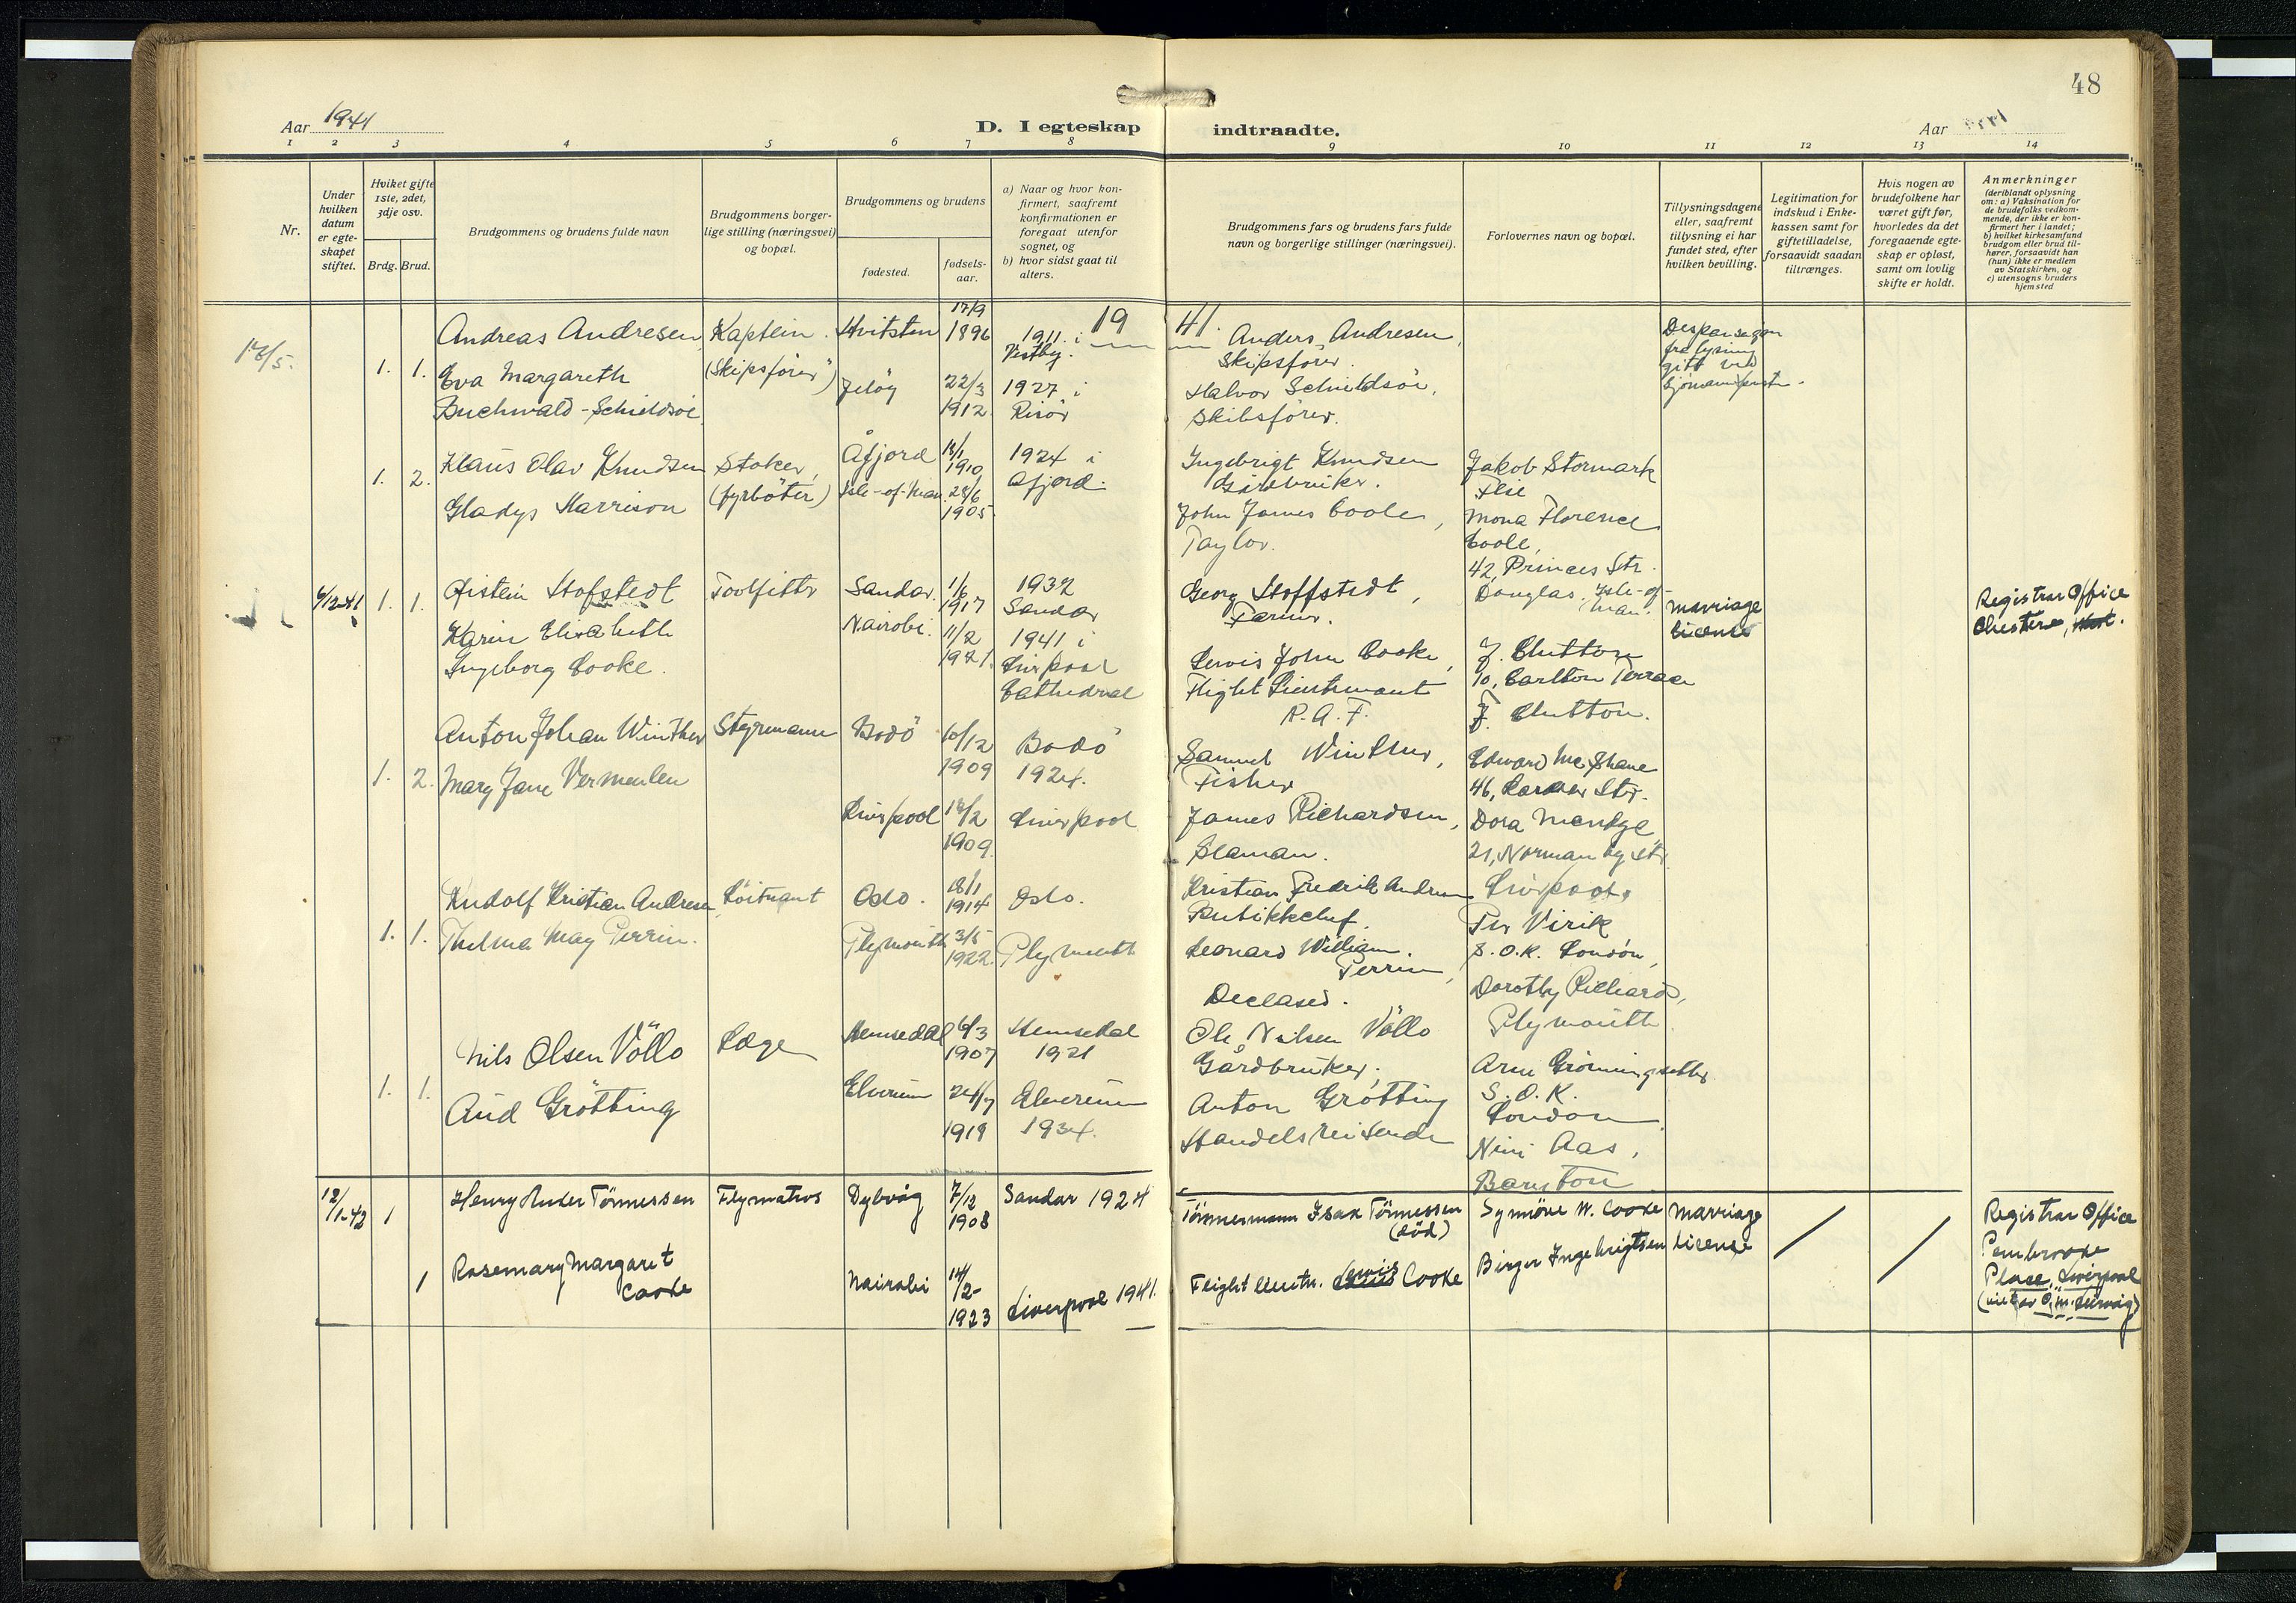 48
Aar 1941
D. I egteskap indtraadte.
Aar
1 2 3 4 5 6 7 8 9 10 11 12 13 14
Nr.
Under
hvilken
datum
er egte-
skapet
stiftet.
Hviket gifte
1ste, 2det,
3dje osv.
Brdg. Brud.
Brudgommens og brudens fulde navn
Brudgommens borger-
lige stilling (næringsvei)
og bopæl.
Brudgommens og brudens
fødested.
fødsels-
aar.
a) Naar og hvor kon-
firmert, saafremt
konfirmationen er
foregaat utenfor
sognet, og
b) hvor sidst gaat til
alters.
Brudgommens fars og brudens fars fulde
navn og borgerlige stillinger (næringsvei).
Forlovernes navn og bopæl.
Tillysningsdagene
eller, saafremt
tillysning ei har
fundet sted, efter
hvilken bevilling.
Legitimation for
indskud i Enke-
kassen samt for
giftetilladelse,
forsaavidt saadan
tiltrænges.
Hvis nogen av
brudefolkene har
været gift før,
hvorledes da det
foregaaende egte-
skap er opløst,
samt om lovlig
skifte er holdt.
Anmerkninger
(deriblandt oplysning
om: a) Vaksination for
de brudefolks vedkom-
mende, der ikke er kon-
firmert her i landet;
b) hvilket kirkesamfund
brudgom eller brud til-
hører, forsaavidt han
(hun) ikke er medlem
av Statskirken, og
c) utensogns bruders
hjemsted
19 41.
18/5.
1. 1.
Andreas Andresen
Eva Margareth
Buchwald-Schieldsöe
Kaptein.
(Skipsfører)
Hvitsten
Jelöy
17/9
1896
22/3
1912
1911. i
Vestby.
1927 i
Risör
Anders Andresen,
Skipsfører.
Halvor Schieldsöe,
Skibsfører.
Despensasjon
fra lysning
gitt ved
Sjömannsprest.
1. 2.
Klaus Olav Knudsen
Gladys Harrison
Stoker,
(fyrböter)
Åfjord
Isle-of-Man.
18/1
1910
28/6
1905
1924 i
Åfjord.
Ingebrigt Knudsen
Gårdbruker.
John James Coole,
Taylor.
Jakob Stormark
Mona Florence
Coole,
42, Princes Str.
Douglas. Isle-of-
Man.
6/12-41 1. 1.
Øistein Hofstedt
Karin Elisabeth
Ingeborg Cooke.
Toolfitter
Sandar.
Nairobi.
1/6
1917
11/2
1921.
1932
Sandar
1941 i
Liverpool
Cathedral
Georg Hoffstedt,
Farmer.
Lewis John Cooke,
Flight Lieutenant
R.A.F.
J. Clutton
10, Carlton Terrace
F. Clutton.
Marriage
License
Registrar Office
Chester,
1. 2.
Anton Johan Winther
Mary Jane Vermeulen
Styrmann
Bodö
Liverpool
10/12
1909
18/2
1909.
Bodö
1924.
Liverpool
Samuel Winther,
Fisher
James Richardsen,
Seaman.
Edward Mc Shane
46, Str.
Dora
21, Normanby Str.
Liverpool.
1. 1.
Rudolf Kristian Andresen
Thelma May Perrin.
Löitnant
Oslo.
Plymouth
18/1
1914
3/5
1922.
Oslo.
Plymouth
Kristian Fredrik Andresen
Butikkchef.
Leonard William
Perrin,
Deceased.
Per Virik
S.O.K. London,
Dorothy Richards,
Plymouth
1. 1.
Nils Olsen Völlo
Aud Grötting
Læge
Hemsedal
Elverum
6/3
1907
24/7
1919
Hemsedal
1921
Elverum
1934.
Ole Nilsen Völlo
Gårdbruker.
Anton Grötting
Handelsreisende
Arne Grønningsæter
S.O.K.
London
Nini Aas,
Barnston
12/1-42 1
1
Henry Anker Tönnessen
Rosemary Margaret
Cooke
Flymatros
Dybvåg
Nairobi
7/12
1908
14/2-
1923
Sandar 1924
Liverpool 1941.
Tömmermann Isak Tönnessen
(död)
Flight lieutn. Lewis Cooke
Synnöve W. Cooke
Birger Ingebrigtsen
Marriage
License
Registrar Office
Pembrooke
Place, Liverpool